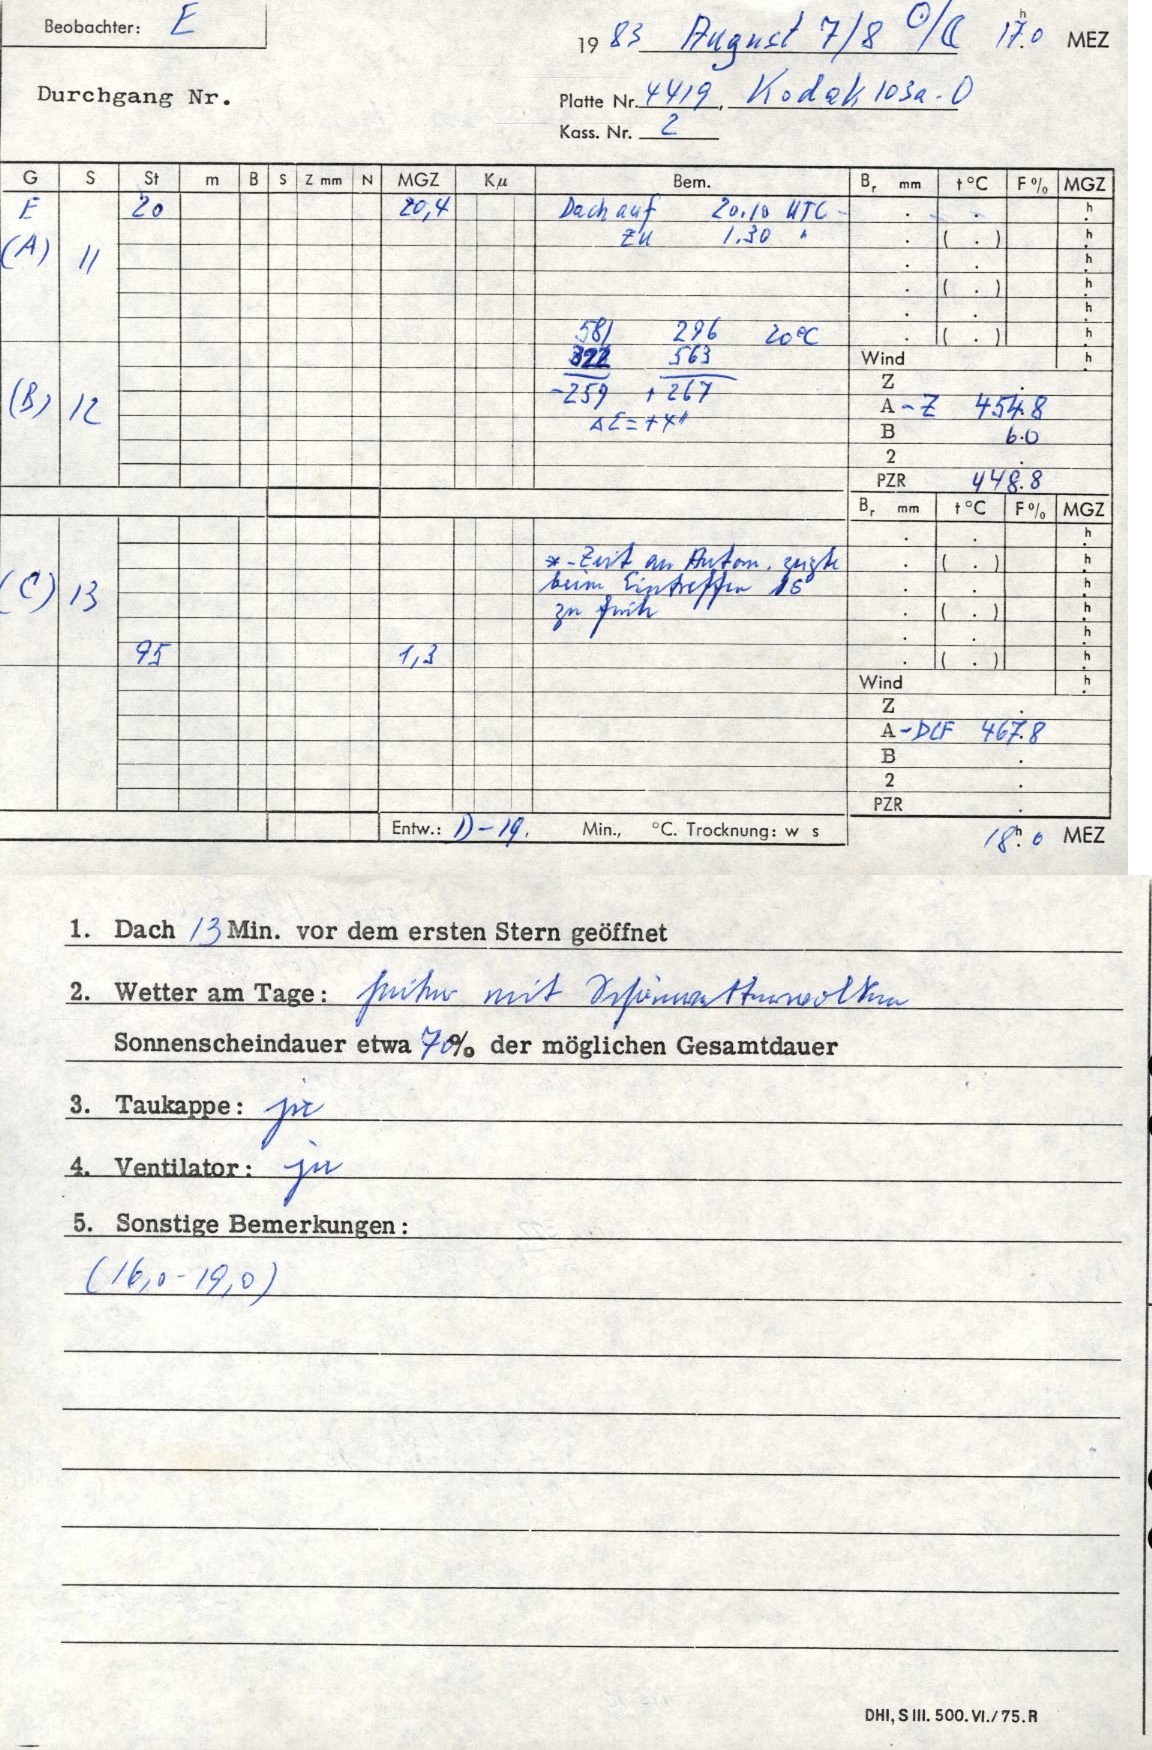 Beobachter: E
19 83 August 7/8 ☉/☾ 17ʰ.0 MEZ
Durchgang Nr.
Platte Nr. 4419, Kodak 103a-O
Kass. Nr. 2
G S St m B S Z mm N MGZ Kμ Bem. Bᵣ mm t°C F% MGZ
E 20 20,4 Dach auf 20.10 UTC - . . h
(A) 11 zu 1.30 " . ( . ) h
. . h
. ( . ) h
. . h
581 296 20°C . ( . ) h
322 563 Wind h
-259 + 267 Z .
(B) 12 A - Z 454.8
ΔE = +4" B 6.0
2 .
PZR 448.8
Bᵣ mm t°C F% MGZ
. . h
*-Zeit am Autom. zeigte . ( . ) h
(C) 13 beim Eintreffen 1s . . h
zu früh . ( . ) h
. . h
95 1,3 . ( . ) h
Wind h
Z .
A - DCF 467.8
B .
2 .
PZR .
Entw.: D-19, Min., °C. Trocknung: w s
18ʰ.0 MEZ
1. Dach 13 Min. vor dem ersten Stern geöffnet
2. Wetter am Tage: heiter mit Schönwetterwolken
Sonnenscheindauer etwa 70% der möglichen Gesamtdauer
3. Taukappe: ja
4. Ventilator: ja
5. Sonstige Bemerkungen:
(16,0 - 19,0)
DHI, S III. 500. VI./75. R